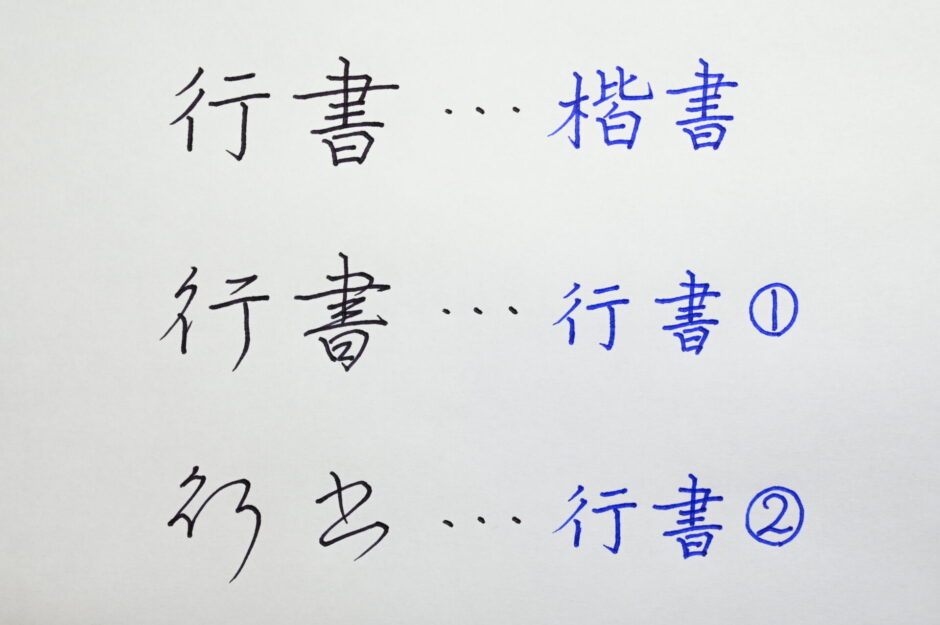 行書…楷書
行書…行書①
行書…行書②